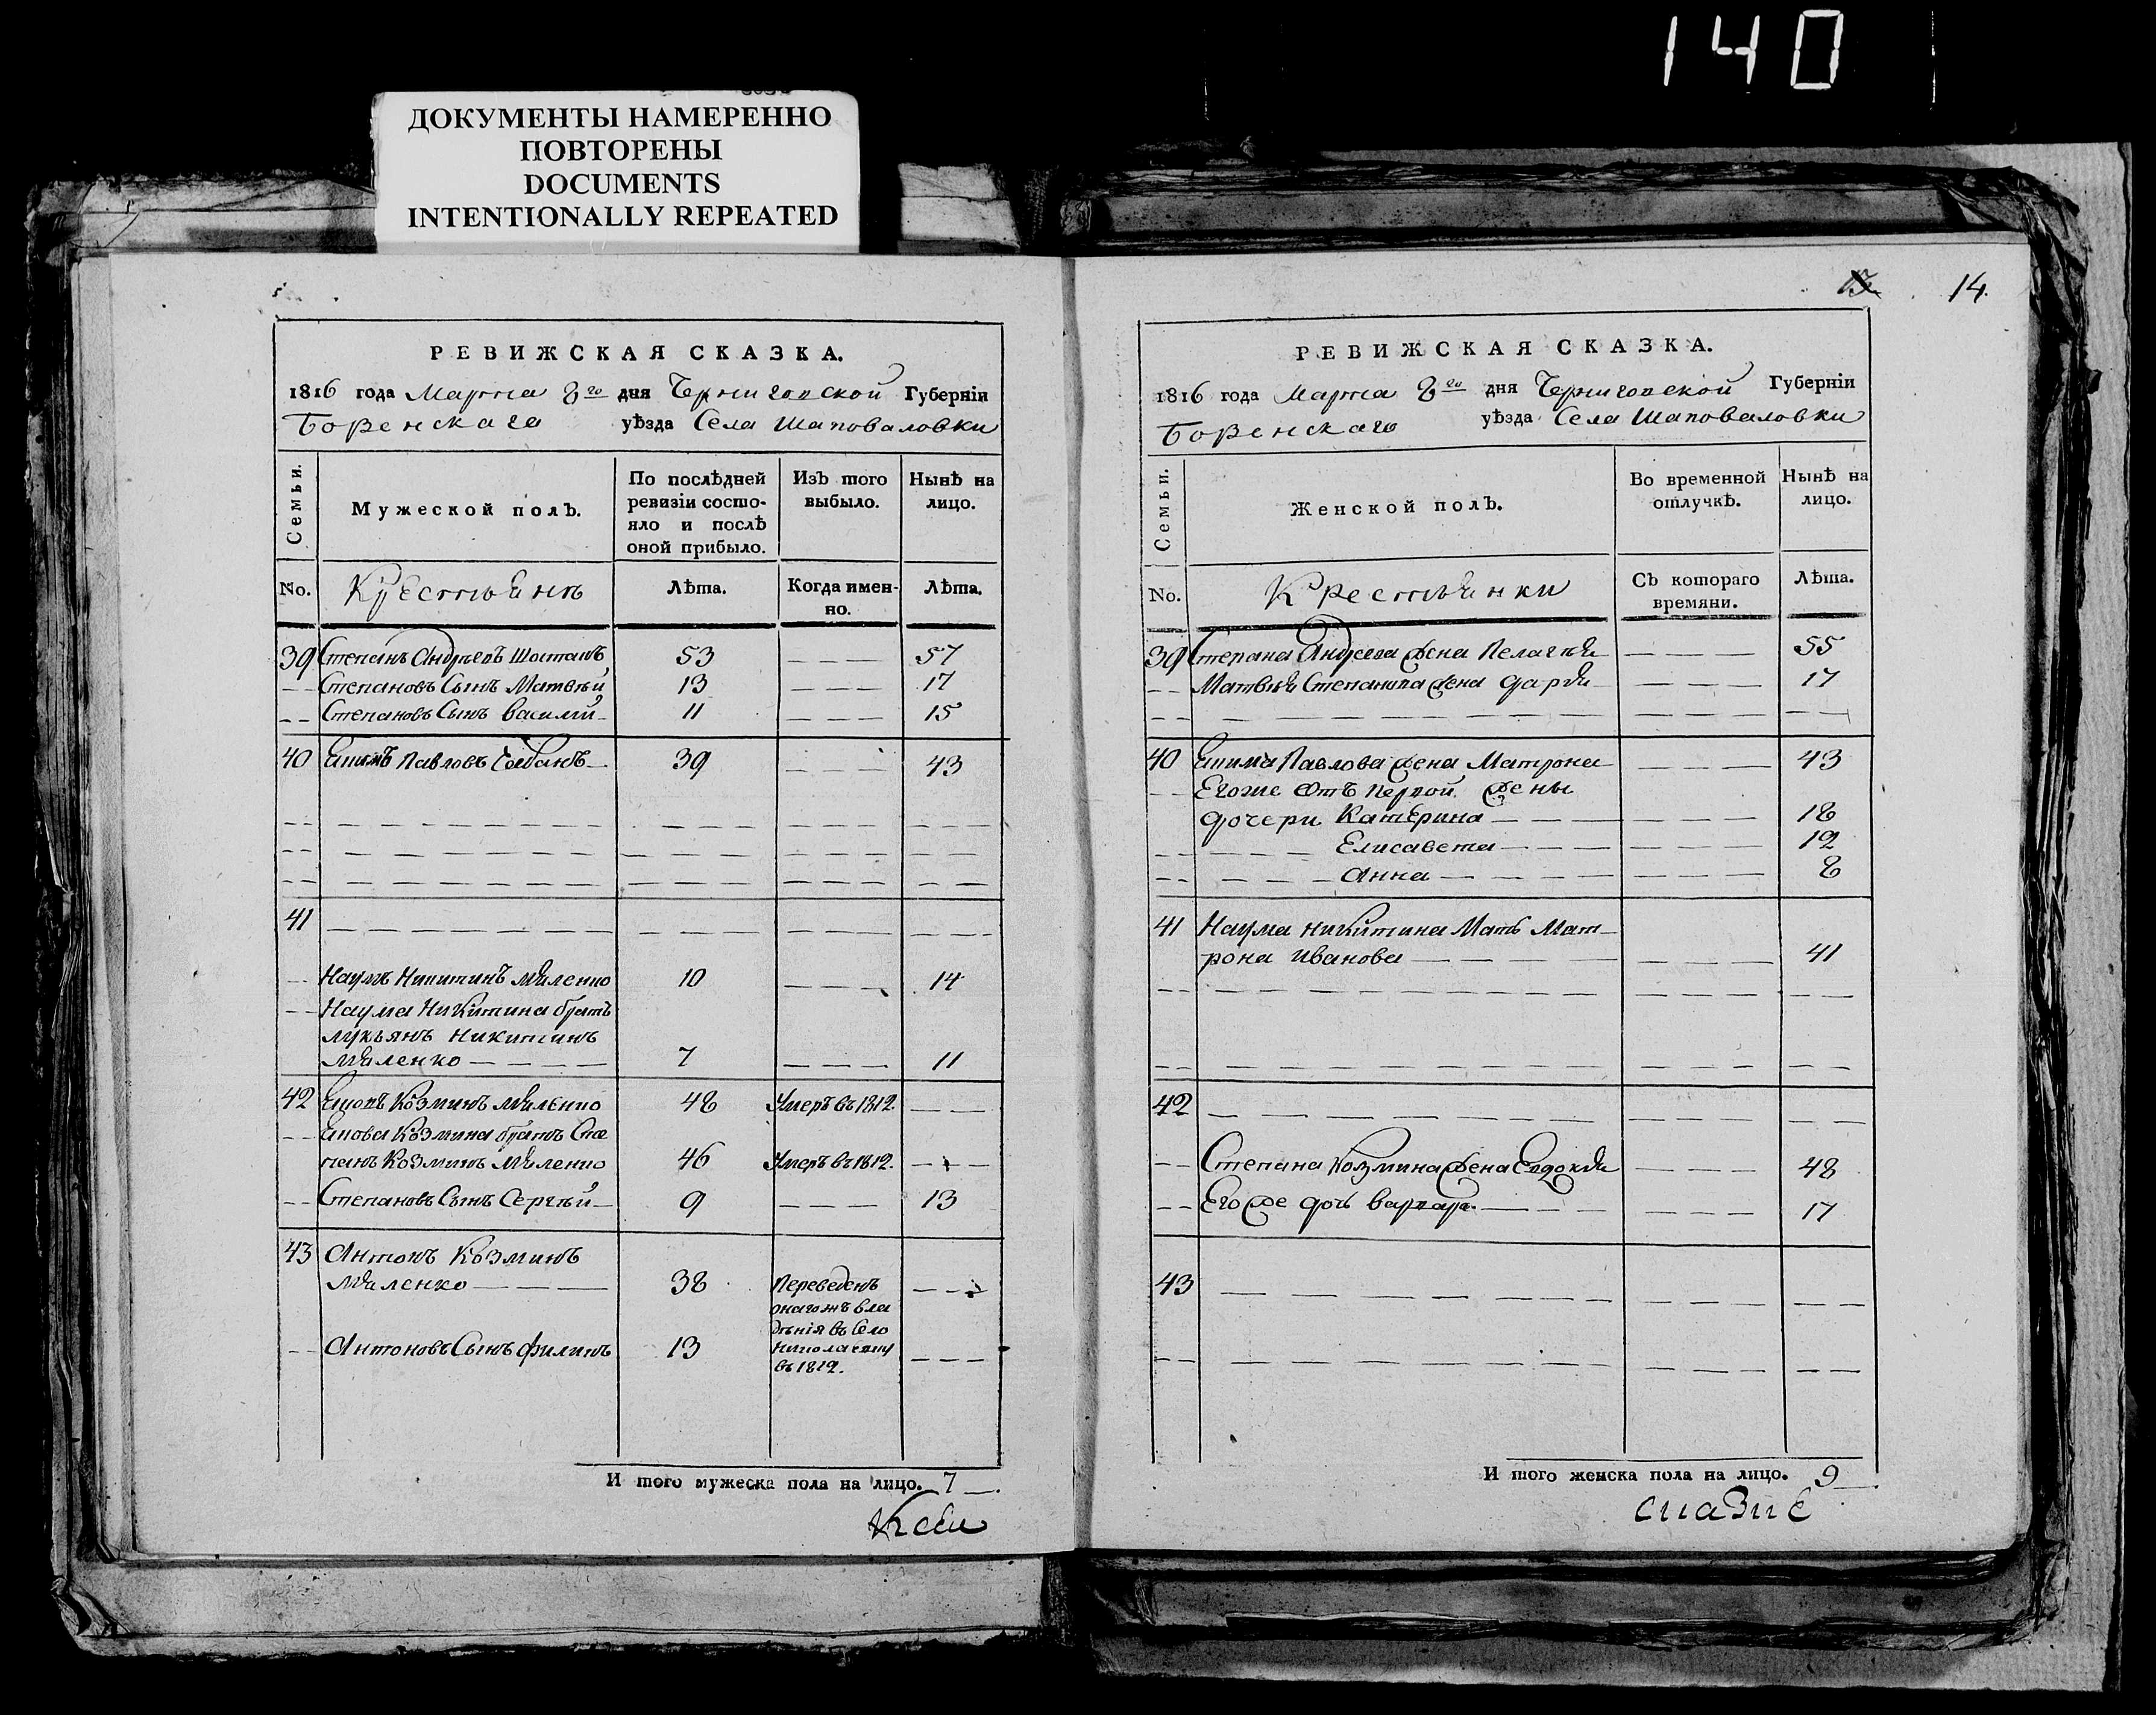 140
ДОКУМЕНТЫ НАМЕРЕННО
ПОВТОРЕНЫ
DOCUMENTS
INTENTIONALLY REPEATED
РЕВИЖСКАЯ СКАЗКА.
1816 года Марта 8го дня Черниговской Губернiи
Борзенскаго уѣзда Села Шаповаловки
Семьи.
Мужеской полъ.
По послѣдней
ревизiи состо-
яло и послѣ
оной прибыло.
Изъ того
выбыло.
Нынѣ на
лицо.
No. Крестьянъ Лѣта. Когда имен-
но.
Лѣта.
39 Степанъ Андреевъ 53 57
Степановъ Сынъ Матвѣй 13 17
Степановъ Сынъ Василий 11 15
40 Павловъ 39 43
41
Наумъ Никитинъ Маленко 10 14
Наума Никитина братъ
Лукьянъ Никитинъ
Маленко 7 11
42 Козминъ Маленко 48 Умеръ въ 1812.
Козмина братъ Сте
панъ Козминъ Маленко 46 Умеръ въ 1812.
Степановъ Сынъ Сергѣй 9 13
43 Антонъ Козминъ
Маленко 38 Переведенъ
онагожъ вла
дѣнiя въ Село
Антоновъ Сынъ Филипъ 13
въ 1812.
И того мужеска пола на лицо. 7
Къ сей
14.
РЕВИЖСКАЯ СКАЗКА.
1816 года Марта 8го дня Черниговской Губернiи
Борзенскаго уѣзда Села Шаповаловки
Семьи.
Женской полъ.
Во временной
отлучкѣ.
Нынѣ на
лицо.
No. Крестьянки Съ котораго
времяни.
Лѣта.
39 Степана Андреева жена Пелагѣя 55
Матвѣя Степанова жена Дарья 17
40 Павлова жена Матрона 43
Егоже отъ первой жены
дочери Катерина 18
Елисавета 12
Анна 8
41 Наума Никитина Мать Мат-
рона Иванова 41
42
Степана Козмина жена Евдокия 48
Его же дочь Варвара 17
43
И того женска пола на лицо. 9
сказке